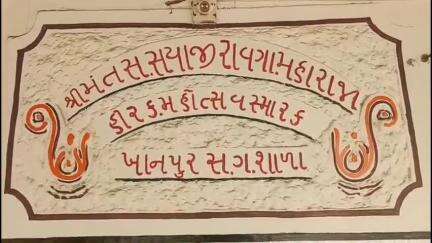 શ્રીમંત સ.સયાજીરાવ ગા.મહારાજા
હીરક મહોત્સવ સ્મારક
ખાનપુર સ.ગ.શાળા